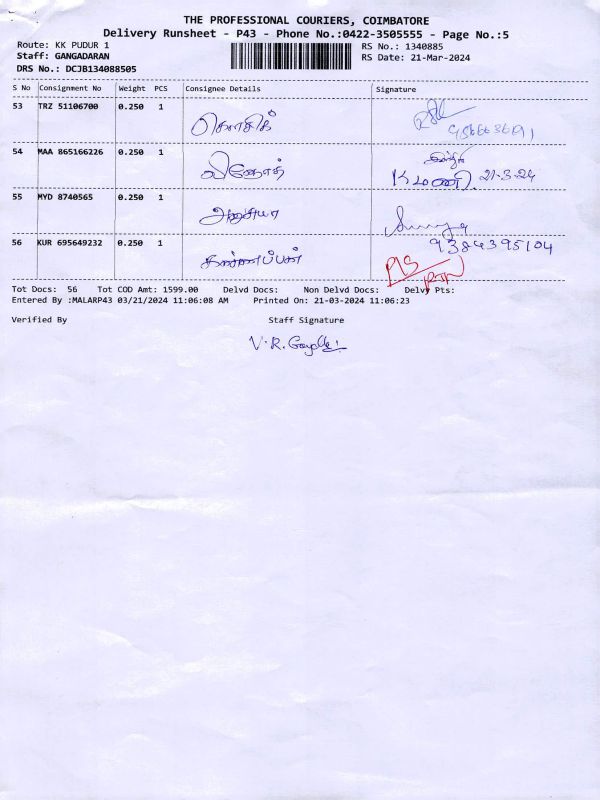 THE PROFESSIONAL COURIERS, COIMBATORE
Delivery Runsheet - P43 - Phone No.:0422-3505555 - Page No.:5
Route: KK PUDUR 1
RS No.: 1340885
Staff: GANGADARAN
RS Date: 21-Mar-2024
DRS No.: DCJB134088505
S No Consignment No Weight PCS Consignee Details Signature
53 TRZ 51106700 0.250 1 கௌசிக்
54 MAA 865166226 0.250 1 வினோத்
K மணி. 21-3-24
55 MYD 8740565 0.250 1
9384395104
56 KUR 695649232 0.250 1 கண்ணப்பன்
Tot Docs: 56 Tot COD Amt: 1599.00 Delvd Docs: Non Delvd Docs: Delvy Pts:
Entered By :MALARP43 03/21/2024 11:06:08 AM Printed On: 21-03-2024 11:06:23
Verified By Staff Signature